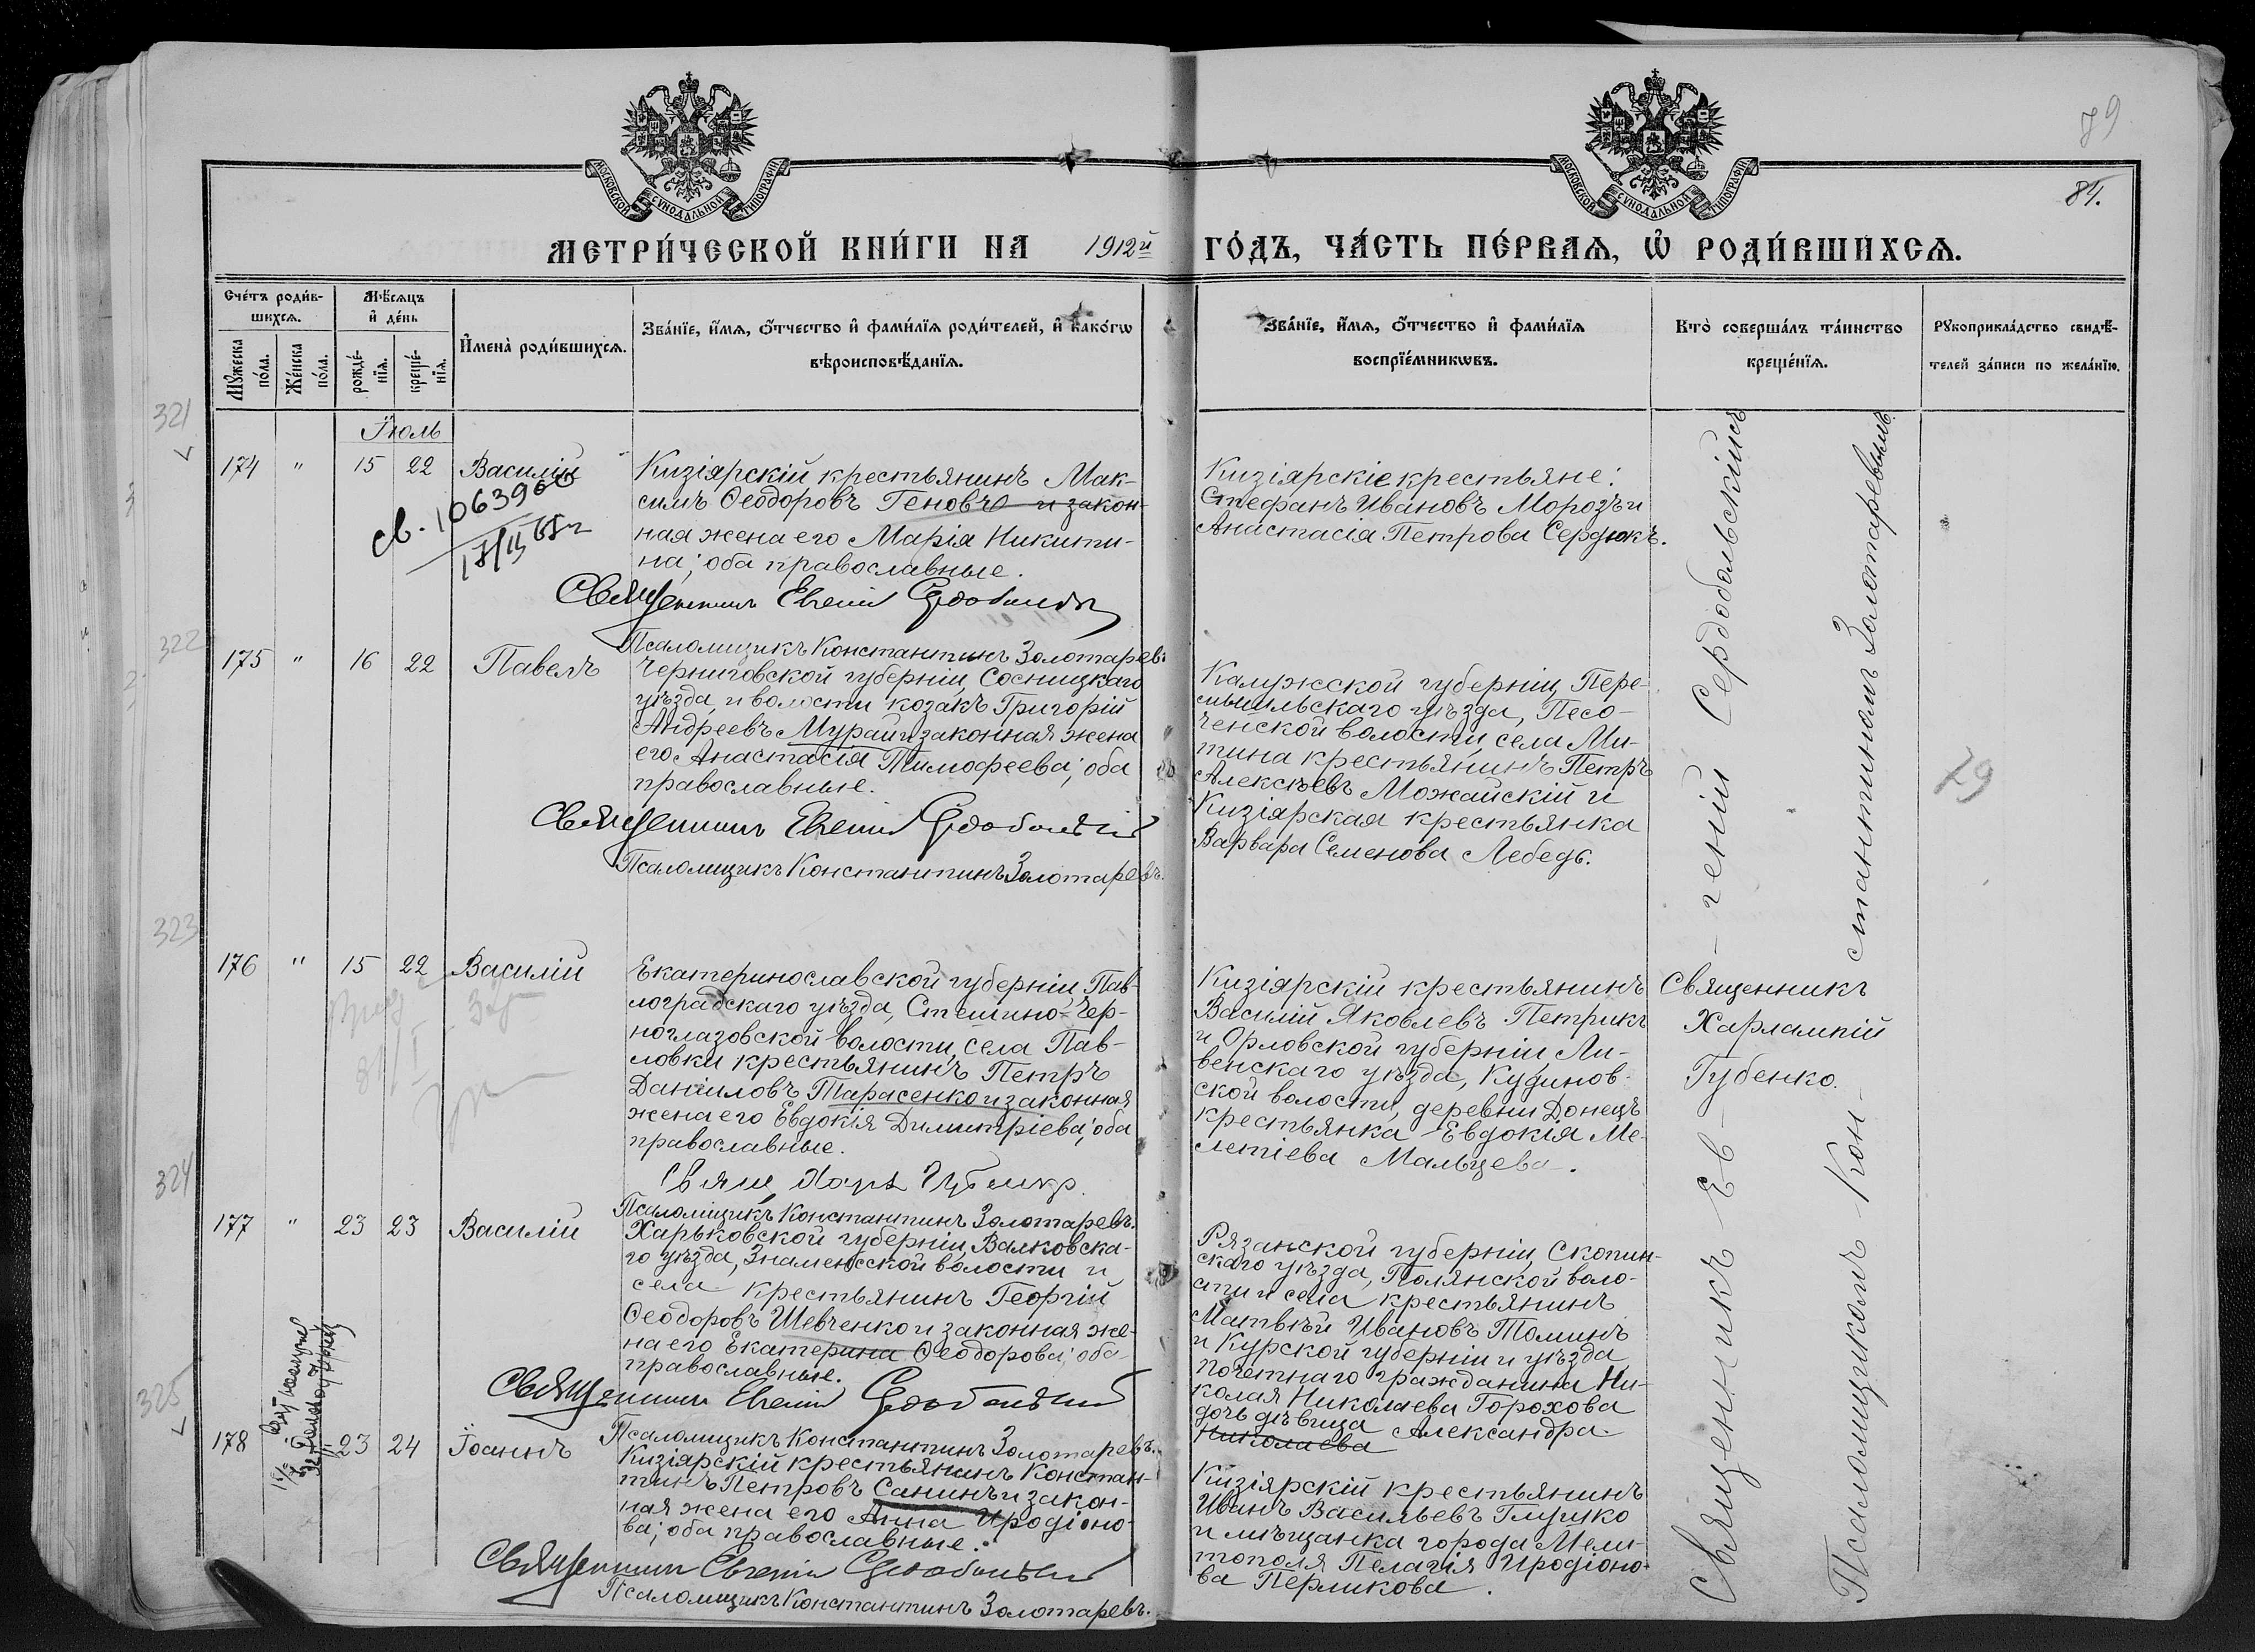 79
84.
МОСКОВСКОЙ СѴНОДАЛЬНОЙ ТИПОГРАФІИ
МОСКОВСКОЙ СѴНОДАЛЬНОЙ ТИПОГРАФІИ
МЕТРИ́ЧЕСКОЙ КНИ́ГИ НА 1912й ГО́ДЪ, ЧА́СТЬ ПЕ́РВАѦ, Ѡ҆ РОДИ́ВШИХСѦ.
Сче́тъ роди́в-
шихсѧ.
Мꙋ́жеска по́ла.
Же́нска по́ла.
Мѣ́сѧцъ
и҆ де́нь
рожде́-
нїѧ.
креще́-
нїѧ.
И҆мена̀ роди́вшихсѧ.
Зва́нїе, и҆́мѧ, ѻ҆́тчество и҆ фами́лїѧ роди́телей, и҆ како́гѡ
вѣроисповѣ́данїѧ.
Зва́нїе, и҆́мѧ, ѻ҆́тчество и҆ фами́лїѧ
воспрїе́мникѡвъ.
Кто̀ соверша́лъ та́инство
креще́нїѧ.
Рꙋкоприкла́дство свидѣ́-
телей за́писи по жела́нїю.
321
Іюль
174 " 15 22 Василій
Кизіярскій крестьянинъ Мак-
симъ Ѳеодоровъ Геновъ и закон-
ная жена его Марія Никити-
на; оба православные.
Священникъ Евгеній Сердобольскій
Псаломщикъ Константинъ Золотаревъ
Кизіярскіе крестьяне:
Стефанъ Ивановъ Морозъ и
Анастасія Петрова Сердюкъ.
св. 1063900
322
175 " 16 22 Павелъ
Черниговской губерніи, Сосницкаго
уѣзда, и волости козакъ Григорій
Андреевъ Мурай и законная жена
его Анастасія Тимофеева; оба
православные.
Священникъ Евгеній Сердобольскій
Псаломщикъ Константинъ Золотаревъ.
Калужской губерніи, Пере-
мышльскаго уѣзда, Песо-
ченской волости, села Ми-
тина крестьянинъ Петръ
Алексѣевъ Можайскій и
Кизіярская крестьянка
Варвара Семенова Лебедь.
79
323
176 " 15 22 Василій
Екатеринославской губерніи, Пав-
лоградскаго уѣзда, Стешино-Чер-
ноглазовской волости, села Пав-
ловки крестьянинъ Петръ
Даніиловъ Тарасенко и законная
жена его Евдокія Димитріева; оба
православные.
Свящ. Харл. Губенко
Псаломщикъ Константинъ Золотаревъ.
Кизіярскій крестьянинъ
Василій Яковлевъ Петрикъ
и Орловской губерніи, Ли-
венскаго уѣзда, Кудинов-
ской волости, деревни Донецъ
крестьянка Евдокія Ме-
летіева Мальцева.
Священникъ
Харлампій
Губенко.
324
177 " 23 23 Василій
Харьковской губерніи, Валковска-
го уѣзда, Знаменсской волости и
села крестьянинъ Георгій
Ѳеодоровъ Шевченко и законная же-
на его Екатерина Ѳеодорова; оба
православные.
Священникъ Евгеній Сердобольскій
Псаломщикъ Константинъ Золотаревъ.
Рязанской губерніи, Скопин-
скаго уѣзда, Полянской воло-
сти и села крестьянинъ
Матвѣй Ивановъ Томинъ
и Курской губерніи и уѣзда
почетнаго гражданина Ни-
колая Николаева Горохова
дочь дѣвица Александра
Николаева
325
178 " 23 24 Іоаннъ
Кизіярскій крестьянинъ Констан-
тинъ Петровъ Санинъ и закон-
ная жена его Анна Иродіоно-
ва; оба православные.
Священникъ Евгеній Сердобольскій
Псаломщикъ Константинъ Золотаревъ.
Кизіярскій крестьянинъ
Иванъ Васильевъ Глушко
и мѣщанка города Мели-
тополя Пелагія Иродіоно-
ва Перликова.
Священникъ Ев-гений Сердобольскійсъ
Псаломщикомъ Кон-стантиномъ Золотаревымъ.